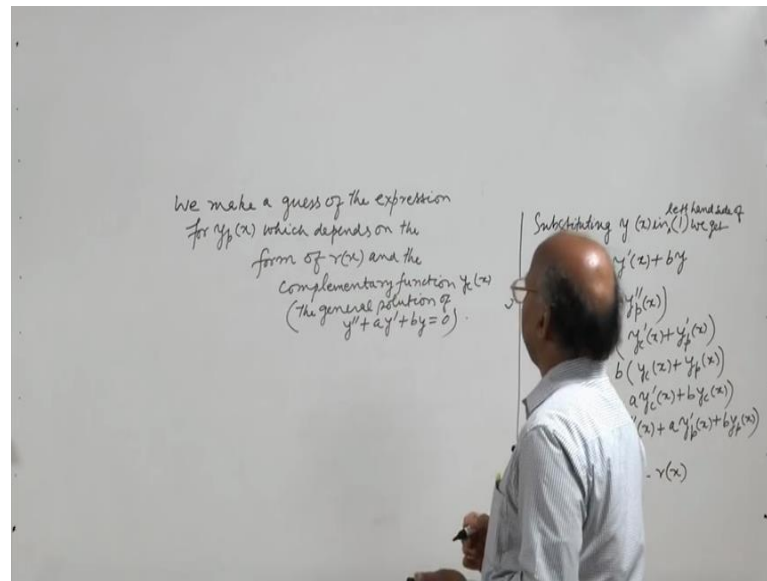 We make a guess of the expression
for yp(x) which depends on the
form of r(x) and the
complementary function yc(x)
(The general solution of
y''+ay'+by=0).
left hand side of
Substituting y(x) in (1) we get
y'(x)+by
yp''(x))
(yc'(x)+yp'(x))
b(yc(x)+yp(x))
ayc'(x)+byc(x))
''(x)+ayp'(x)+byp(x))
r(x)